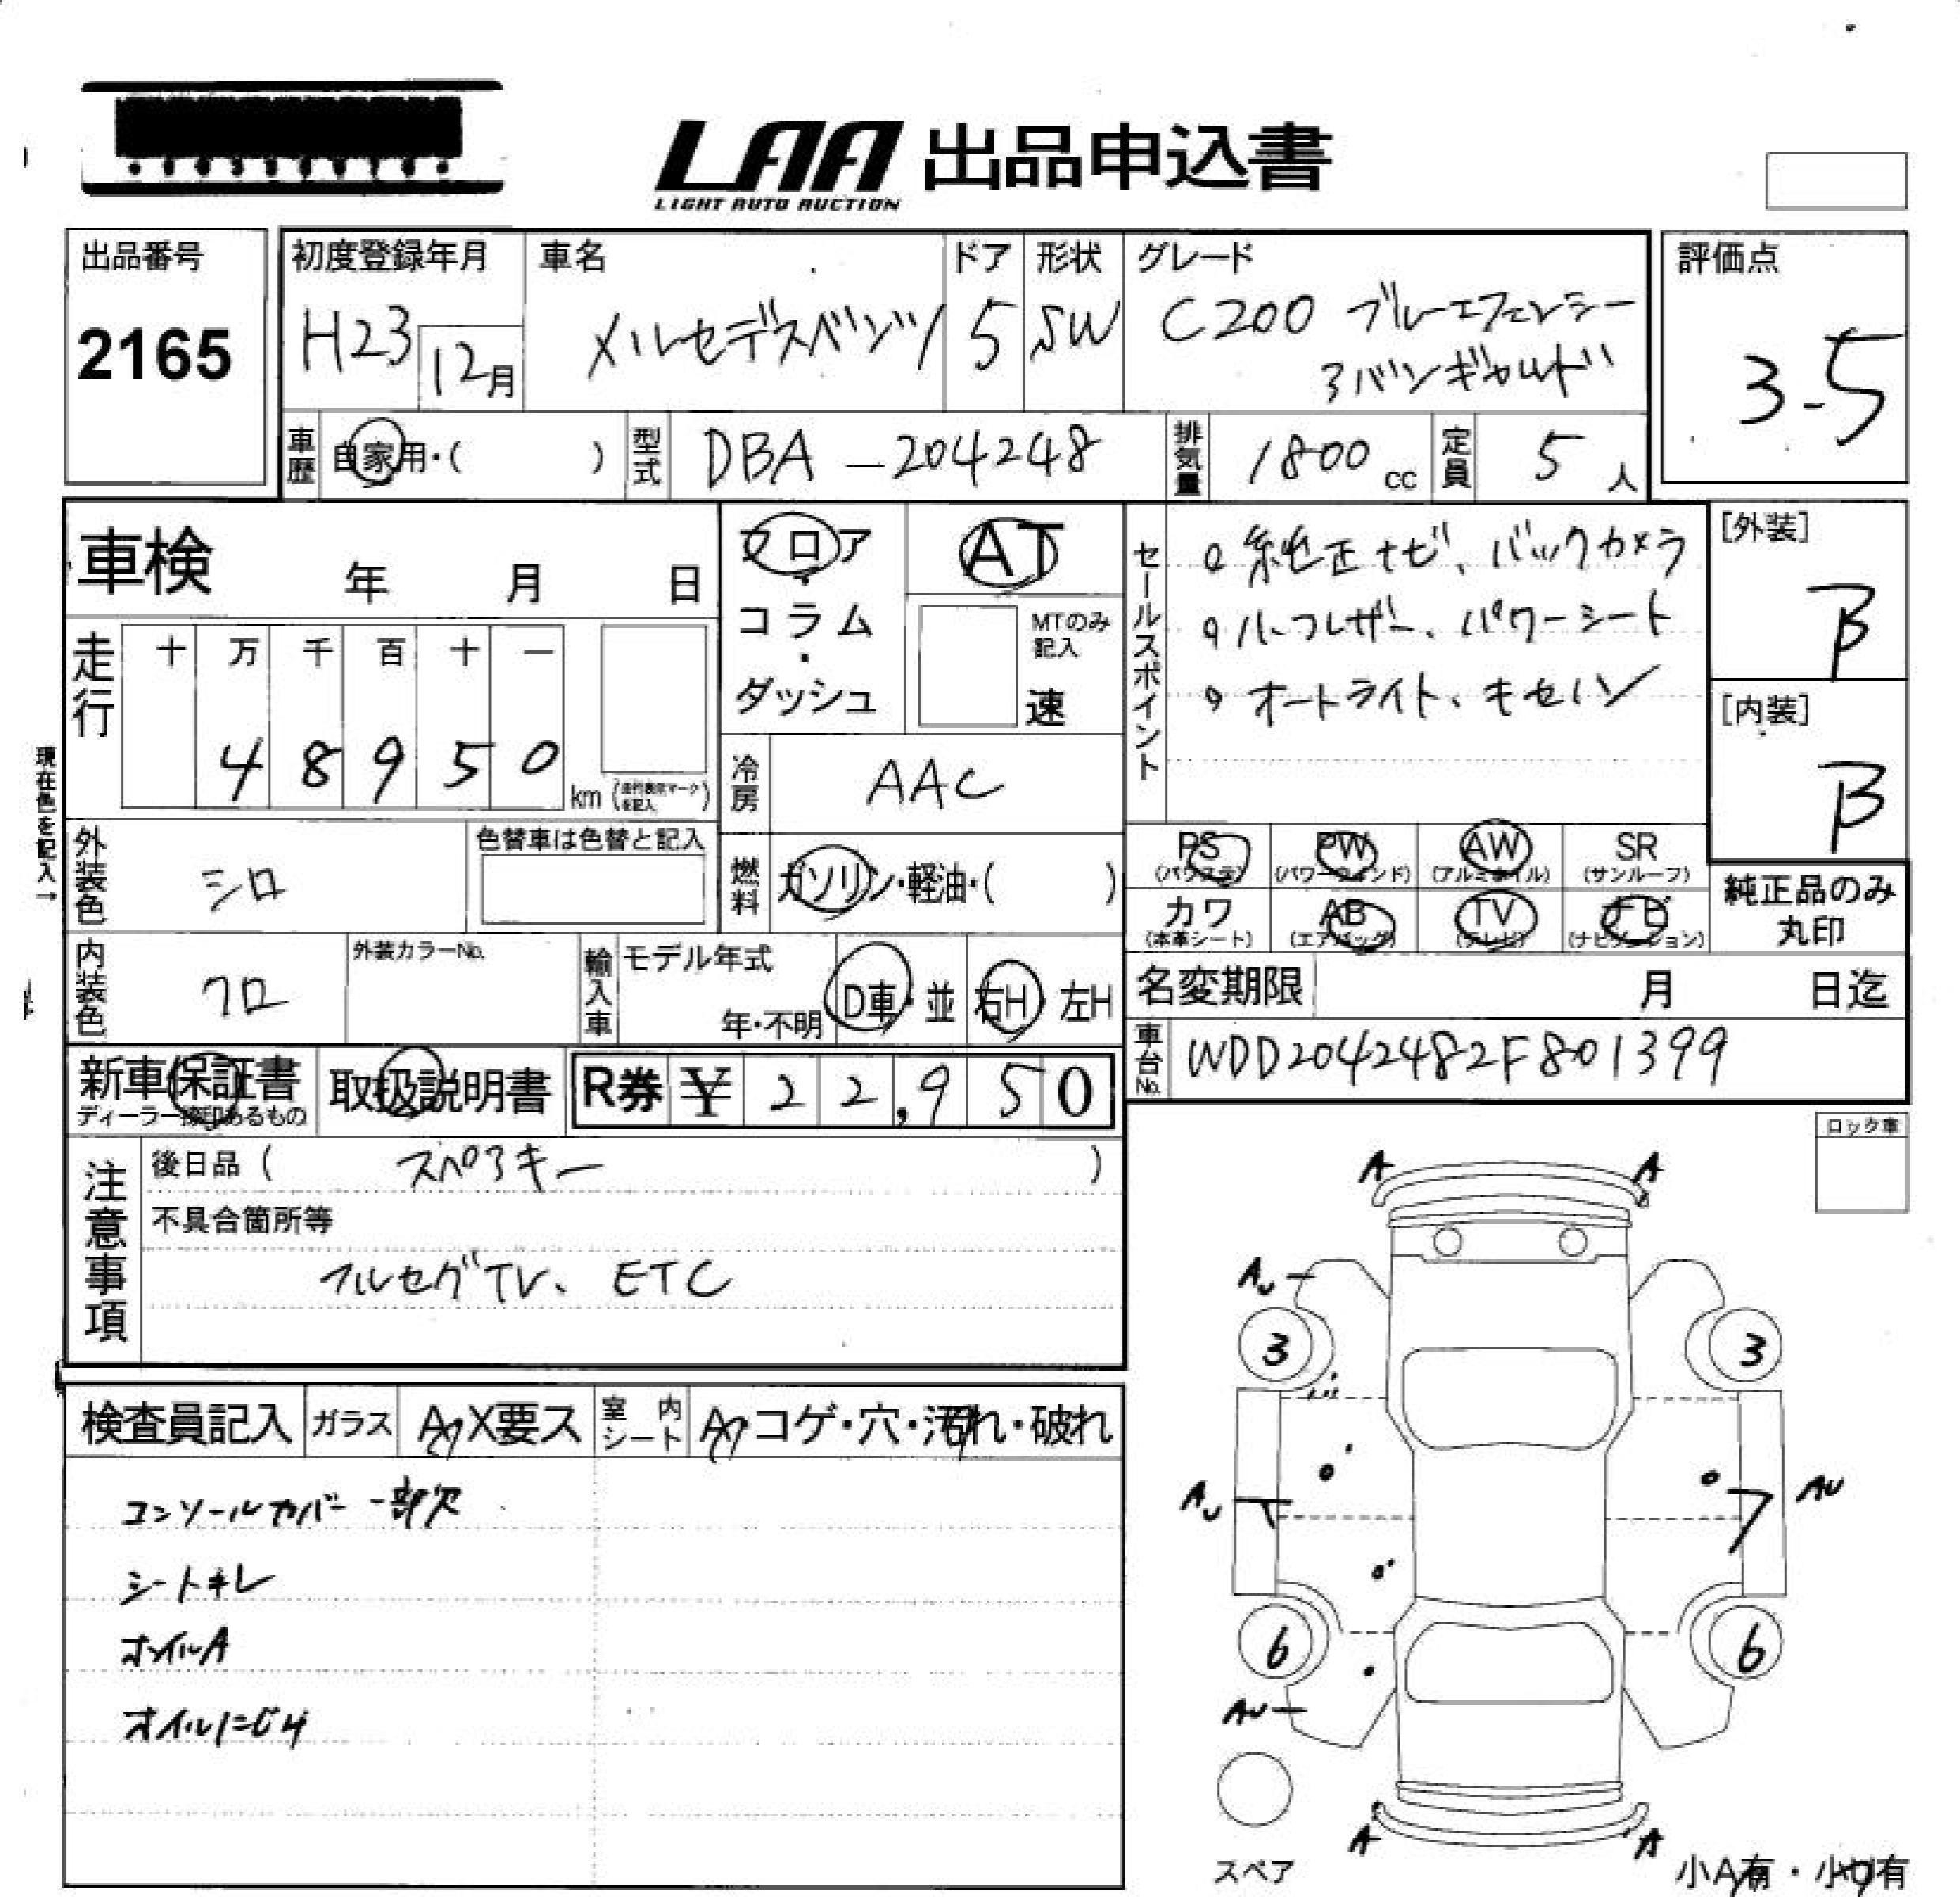 LAA 出品申込書
LIGHT AUTO AUCTION
出品番号
2165
初度登録年月
H23 12月
車名
メルセデスベンツ
ドア
5
形状
SW
グレード
C200 ブルーエフェンシー
アバンギャルド
評価点
3.5
車歴 自家用・( )
型式 DBA-204248
排気量 1800 cc
定員 5 人
車検 年 月 日
フロア・コラム・ダッシュ
AT
MTのみ記入
速
セールスポイント
純正ナビ、バックカメラ
ハーフレザー、パワーシート
オートライト、キセノン
[外装]
B
[内装]
B
走行
十 万 千 百 十 一
4 8 9 5 0 km (走行表示マークを記入)
現在色を記入→
冷房 AAC
外装色 シロ
色替車は色替と記入
燃料 ガソリン・軽油・( )
PS (パワステ) PW (パワーウィンド) AW (アルミホイル) SR (サンルーフ)
カワ (本革シート) AB (エアバッグ) TV (テレビ) ナビ (ナビゲーション)
純正品のみ丸印
内装色 クロ
外装カラーNo.
輸入車
モデル年式
年・不明
D車・並
右H・左H
名変期限 月 日迄
車台No. WDD2042482F801399
新車保証書
ディーラー捺印あるもの
取扱説明書
R券 ¥ 22,950
ロック車
注意事項
後日品 ( スペアキー )
不具合箇所等
フルセグTV、ETC
検査員記入 ガラス A・X要ス 室内シート A・コゲ・穴・汚れ・破れ
コンソールカバー一部欠
シートキレ
ホイルA
オイルにじみ
A A
AU
3 3
AU AU
6 6
AU
A A
スペア
小A有・小U有